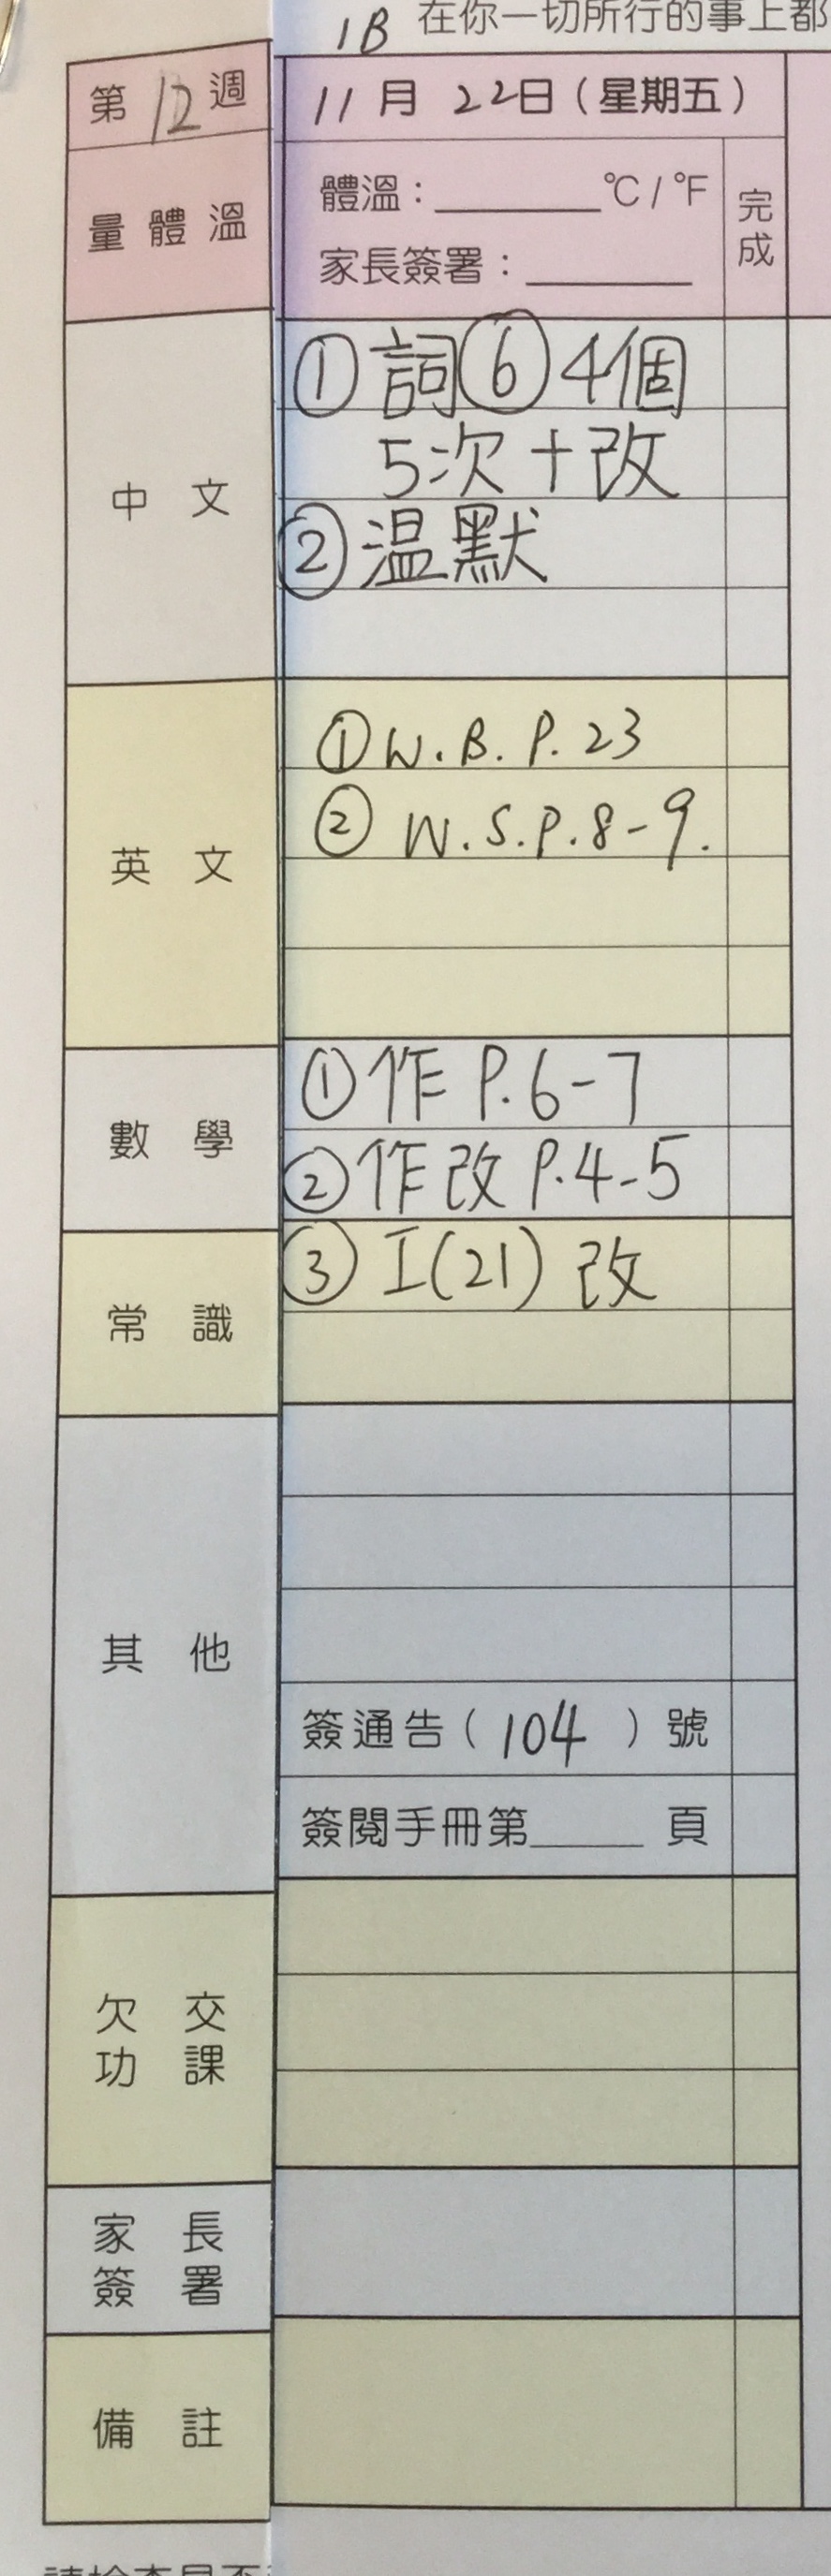 1B 在你一切所行的事上都
第12週
11月22日(星期五)
量體溫
體溫：______℃/℉
家長簽署：______
完成
中文
①詞⑥4個
5次+改
②温默
英文
①W.B.P.23
②W.S.P.8-9.
數學
①作P.6-7
②作改P.4-5
常識
③I(21)改
其他
簽通告(104)號
簽閱手冊第____頁
欠交
功課
家長
簽署
備註